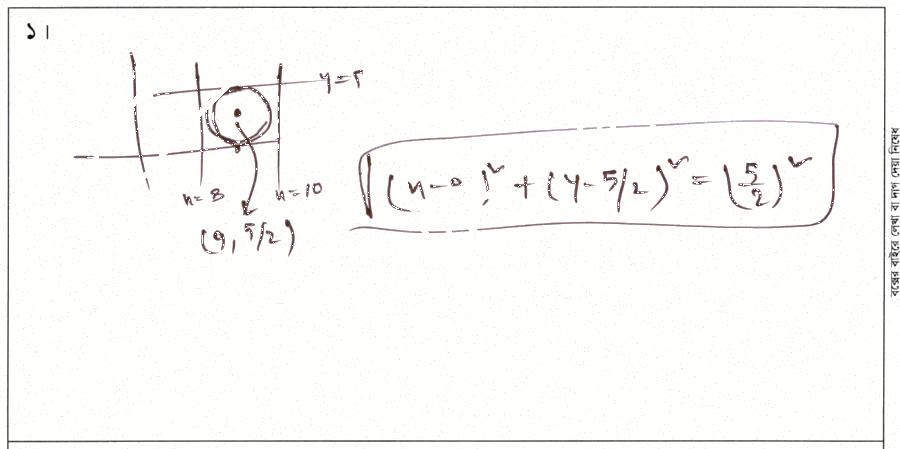 ১।
y=5
x=8
x=10
(9, 5/2)
(x-9)² + (y-5/2)² = (5/2)²
বক্সের বাইরে লেখা বা দাগ দেয়া নিষেধ